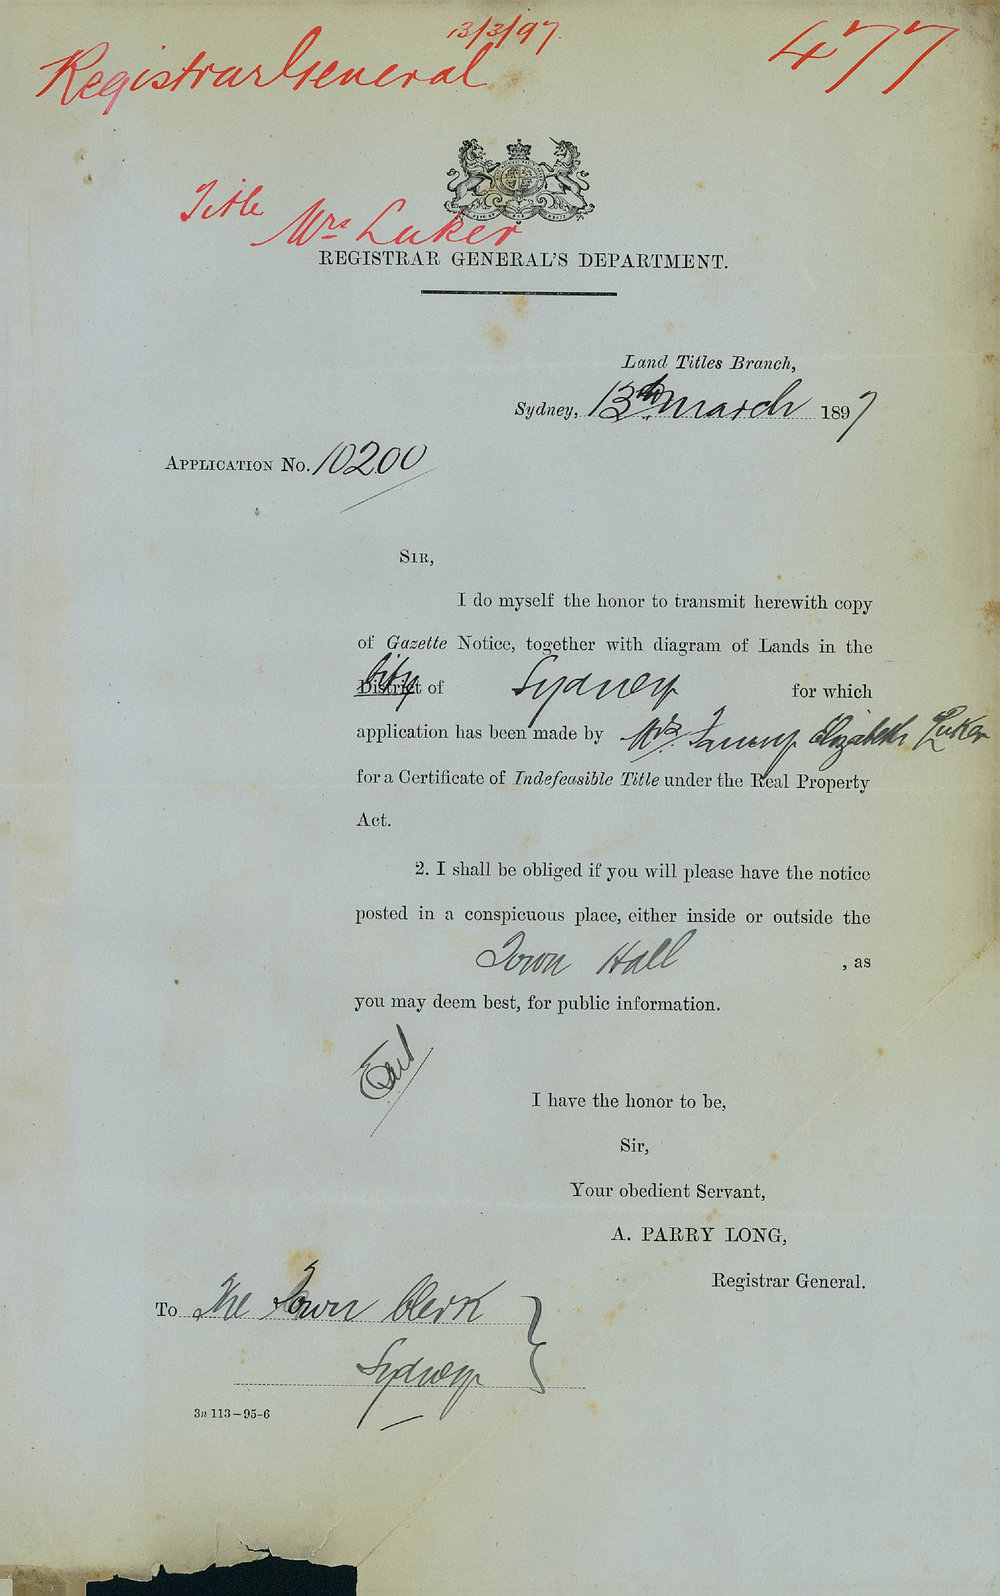 13/3/97
477
Registrar General
Title
Mrs Luker
REGISTRAR GENERAL'S DEPARTMENT.
Land Titles Branch,
Sydney, 13th March 1897
APPLICATION No. 10200
SIR,
I do myself the honor to transmit herewith copy
of Gazette Notice, together with diagram of Lands in the
City
District of Sydney for which
application has been made by Mrs. Fanny Elizabeth Luker
for a Certificate of Indefeasible Title under the Real Property
Act.
2. I shall be obliged if you will please have the notice
posted in a conspicuous place, either inside or outside the
Town Hall , as
you may deem best, for public information.
I have the honor to be,
Sir,
Your obedient Servant,
A. PARRY LONG,
Registrar General.
To The Town Clerk
Sydney
3n 113–95–6